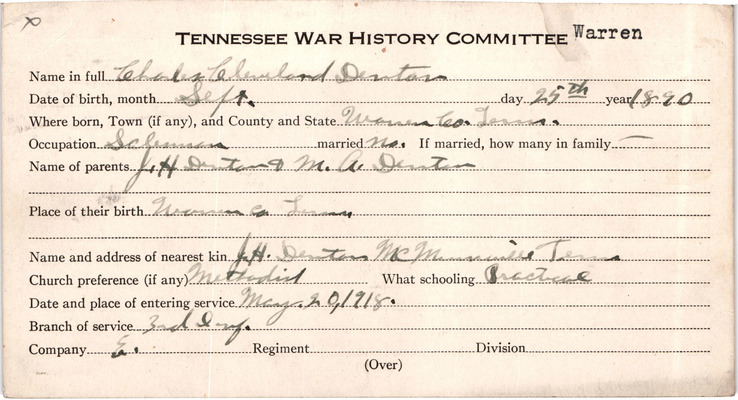 x
TENNESSEE WAR HISTORY COMMITTEE Warren
Name in full Charles Cleveland Denton
Date of birth, month Sept. day 25th year 1890
Where born, Town (if any), and County and State Warren Co. Tenn.
Occupation Salesman married No. If married, how many in family —
Name of parents J. H Denton & M. A. Denton
Place of their birth Warren Co Tenn
Name and address of nearest kin J. H. Denton McMinnville Tenn
Church preference (if any) Methodist What schooling Practical
Date and place of entering service May. 20, 1918.
Branch of service 3rd Inf.
Company E. Regiment Division
(Over)